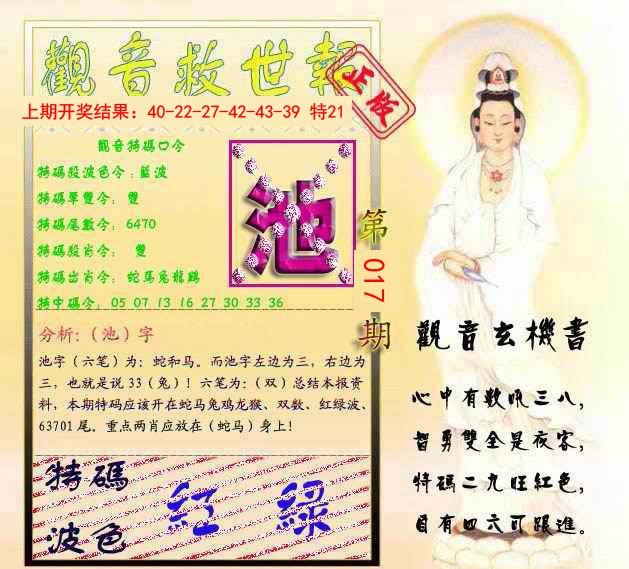 觀音救世報
正版
上期开奖结果：40-22-27-42-43-39 特21
觀音特碼口令
特碼段波色令：藍波
特碼單雙令： 雙
特碼尾數令： 6470
特碼段肖令： 雙
特碼出肖令： 蛇馬兔龍鷄
特中碼令： 05 07 13 16 27 30 33 36
池
第017期
分析:（池）字
池字（六笔）为：蛇和马。而池字左边为三，右边为
三，也就是说 33（兔）！六笔为：（双）总结本报资
料，本期特码应该开在蛇马兔鸡龙猴、双数、红绿波、
63701 尾。重点两肖应放在（蛇马）身上！
特碼
波色
紅 綠
觀音玄機書
心中有数吼三八，
智勇雙全是夜家，
特碼二九旺紅色，
自有四六可跟進。